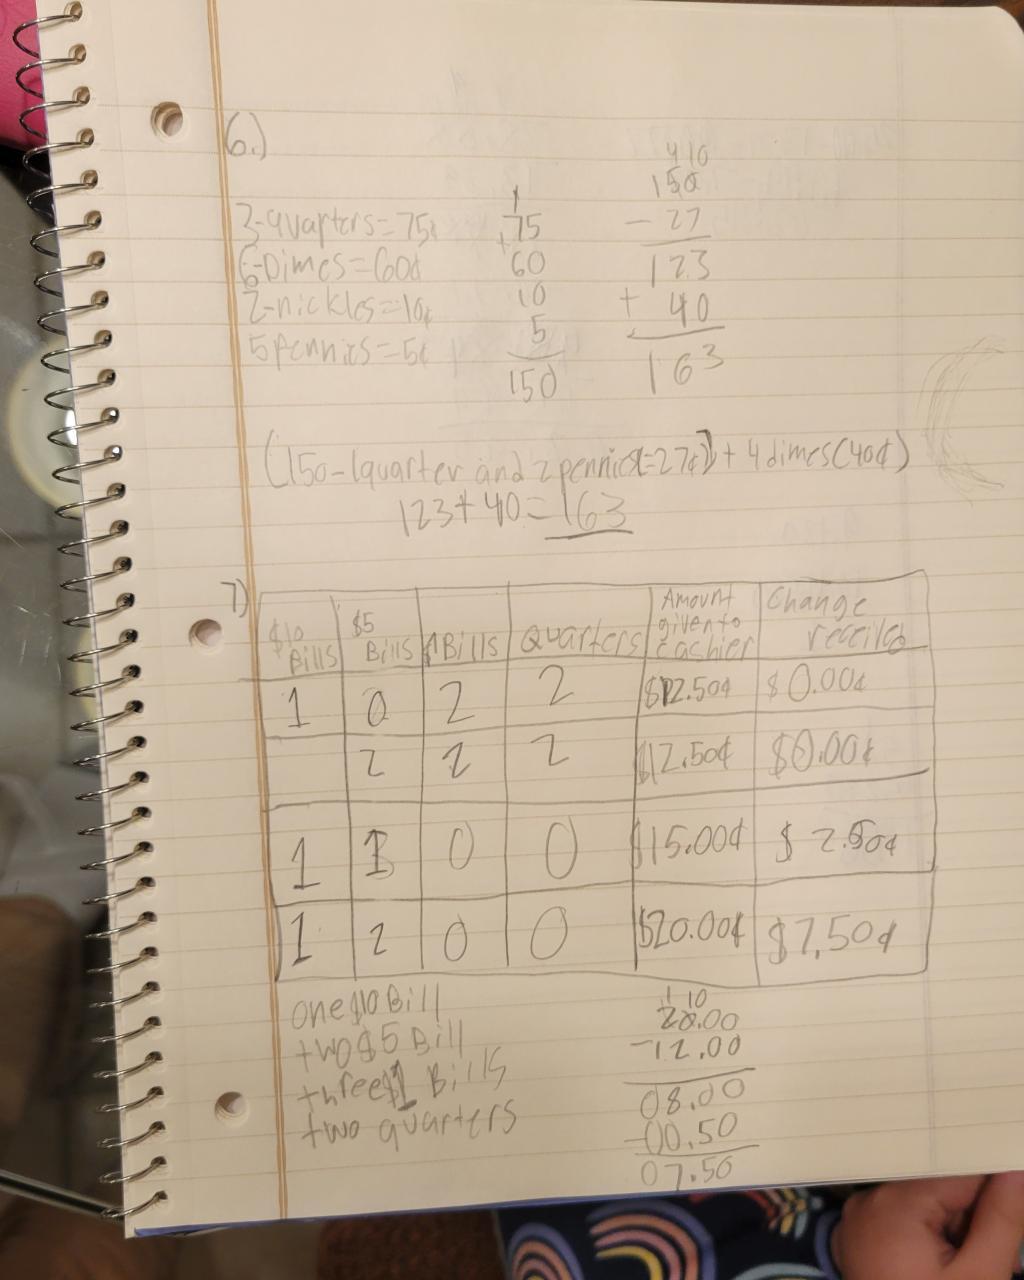 6.)
3-quarters=75¢
6-Dimes=60¢
2-nickles=10¢
5 pennies=5¢
1
75
+
60
10
5
150
4 10
150
- 27
123
+ 40
163
(150-1quarter and 2 pennies(=27¢)) + 4 dimes(40¢)
123+40=163
7)
$10 Bills $5 Bills $1 Bills Quarters Amount given to cashier Change
1 0 2 2 $12.50¢ $0.00¢
2 2 2 $12.50¢ $0.00¢
1 1 0 0 $15.00¢ $2.50¢
1 2 0 0 $20.00¢ $7.50¢
one $10 Bill
two $5 Bill
three $1 Bills
two quarters
1 10
20.00
-12.00
08.00
-00.50
07.50